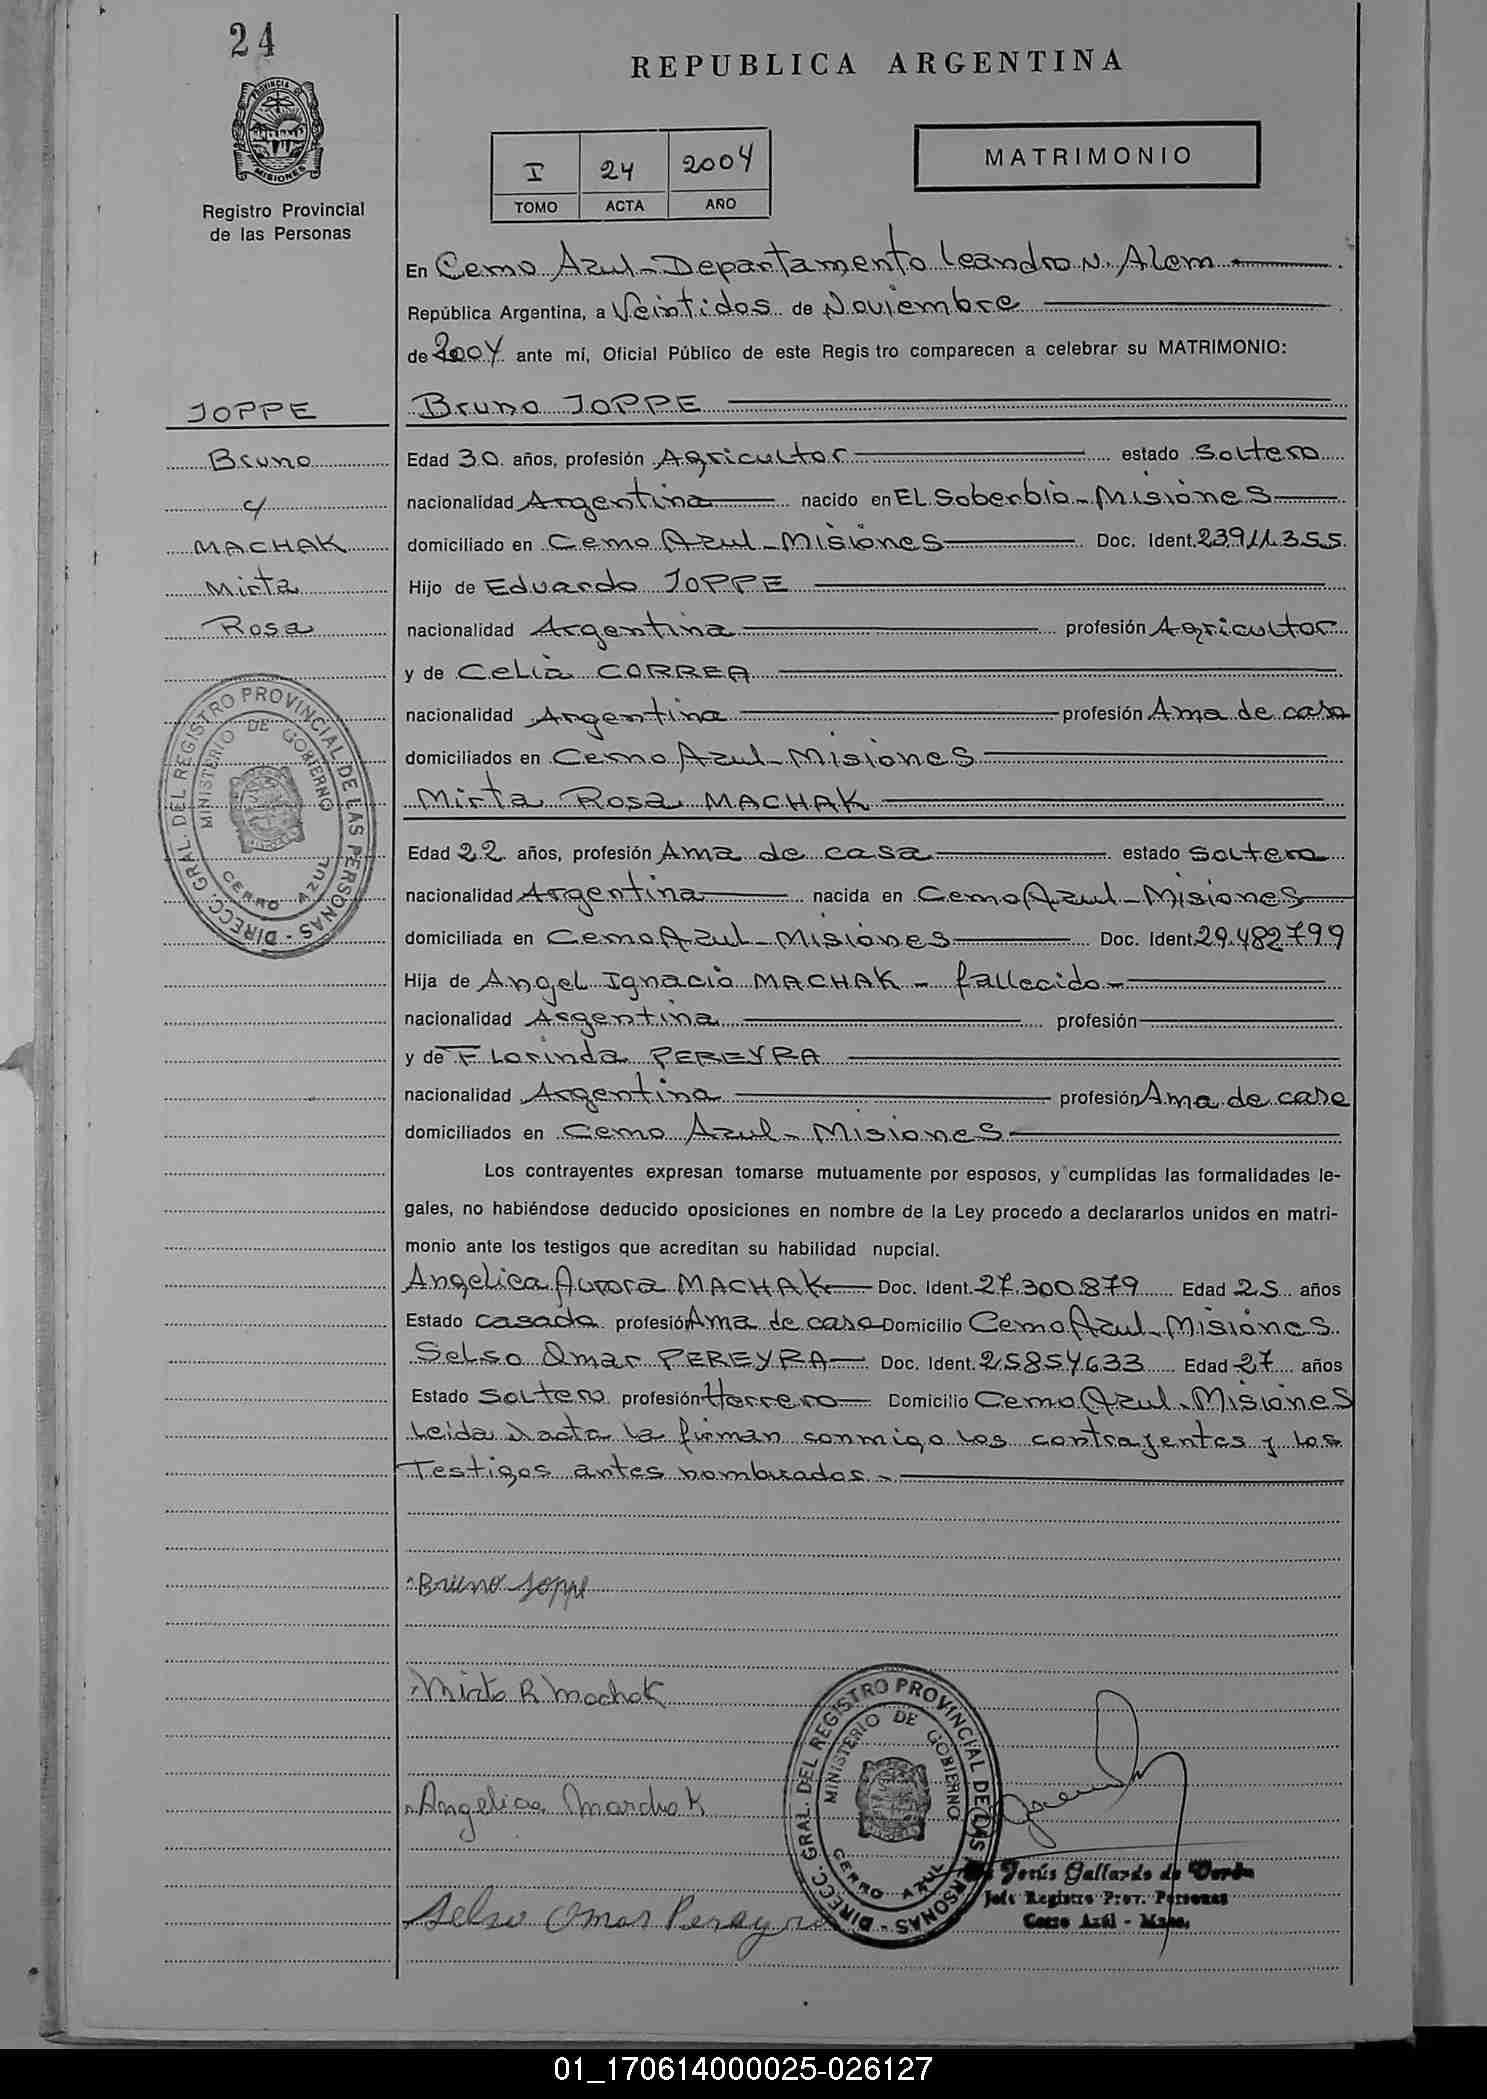 24
REPUBLICA ARGENTINA
PROVINCIA DE
MISIONES
Registro Provincial
de las Personas
I 24 2004
TOMO ACTA AÑO
MATRIMONIO
En Cerro Azul - Departamento Leandro N. Alem
República Argentina, a Veintidos de Noviembre
de 2004 ante mí, Oficial Público de este Registro comparecen a celebrar su MATRIMONIO:
JOPPE
Bruno JOPPE
Bruno
Edad 30 años, profesión Agricultor estado Soltero
c/
nacionalidad Argentina nacido en EL Soberbio - Misiones
MACHAK
domiciliado en Cerro Azul - Misiones Doc. Ident. 23911.355
Mirta
Hijo de Eduardo JOPPE
Rosa
nacionalidad Argentina profesión Agricultor
y de Celia CORREA
nacionalidad Argentina profesión Ama de casa
domiciliados en Cerro Azul - Misiones
Mirta Rosa MACHAK
DIRECC. GRAL. DEL REGISTRO PROVINCIAL DE LAS PERSONAS -
MINISTERIO DE GOBIERNO
CERRO AZUL
Edad 22 años, profesión Ama de casa estado Soltera
nacionalidad Argentina nacida en Cerro Azul - Misiones
domiciliada en Cerro Azul - Misiones Doc. Ident. 29.482799
Hija de Angel Ignacio MACHAK - fallecido -
nacionalidad Argentina profesión
y de Florinda PEREYRA
nacionalidad Argentina profesión Ama de casa
domiciliados en Cerro Azul - Misiones
Los contrayentes expresan tomarse mutuamente por esposos, y cumplidas las formalidades le-
gales, no habiéndose deducido oposiciones en nombre de la Ley procedo a declararlos unidos en matri-
monio ante los testigos que acreditan su habilidad nupcial.
Angelica Aurora MACHAK Doc. Ident. 27.300.879 Edad 25 años
Estado casada profesión Ama de casa Domicilio Cerro Azul - Misiones
Selso Omar PEREYRA Doc. Ident. 25854633 Edad 27 años
Estado Soltero profesión Herrero Domicilio Cerro Azul - Misiones
Leida acta la firman conmigo los contrayentes y los
Testigos antes nombrados -
Bruno Joppe
Mirta R Machak
Angelica Marchak
Selso Omar Pereyra
DIRECC. GRAL. DEL REGISTRO PROVINCIAL DE LAS PERSONAS -
MINISTERIO DE GOBIERNO
CERRO AZUL
Jesús Gallardo de
Jefe Registro Prov. Personas
Cerro Azúl - Mnes.
01_170614000025-026127